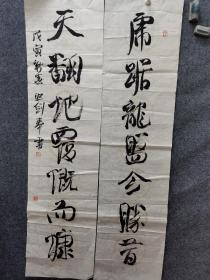 虎踞龍盤今勝昔
天翻地覆慨而慷
戊寅新春
書